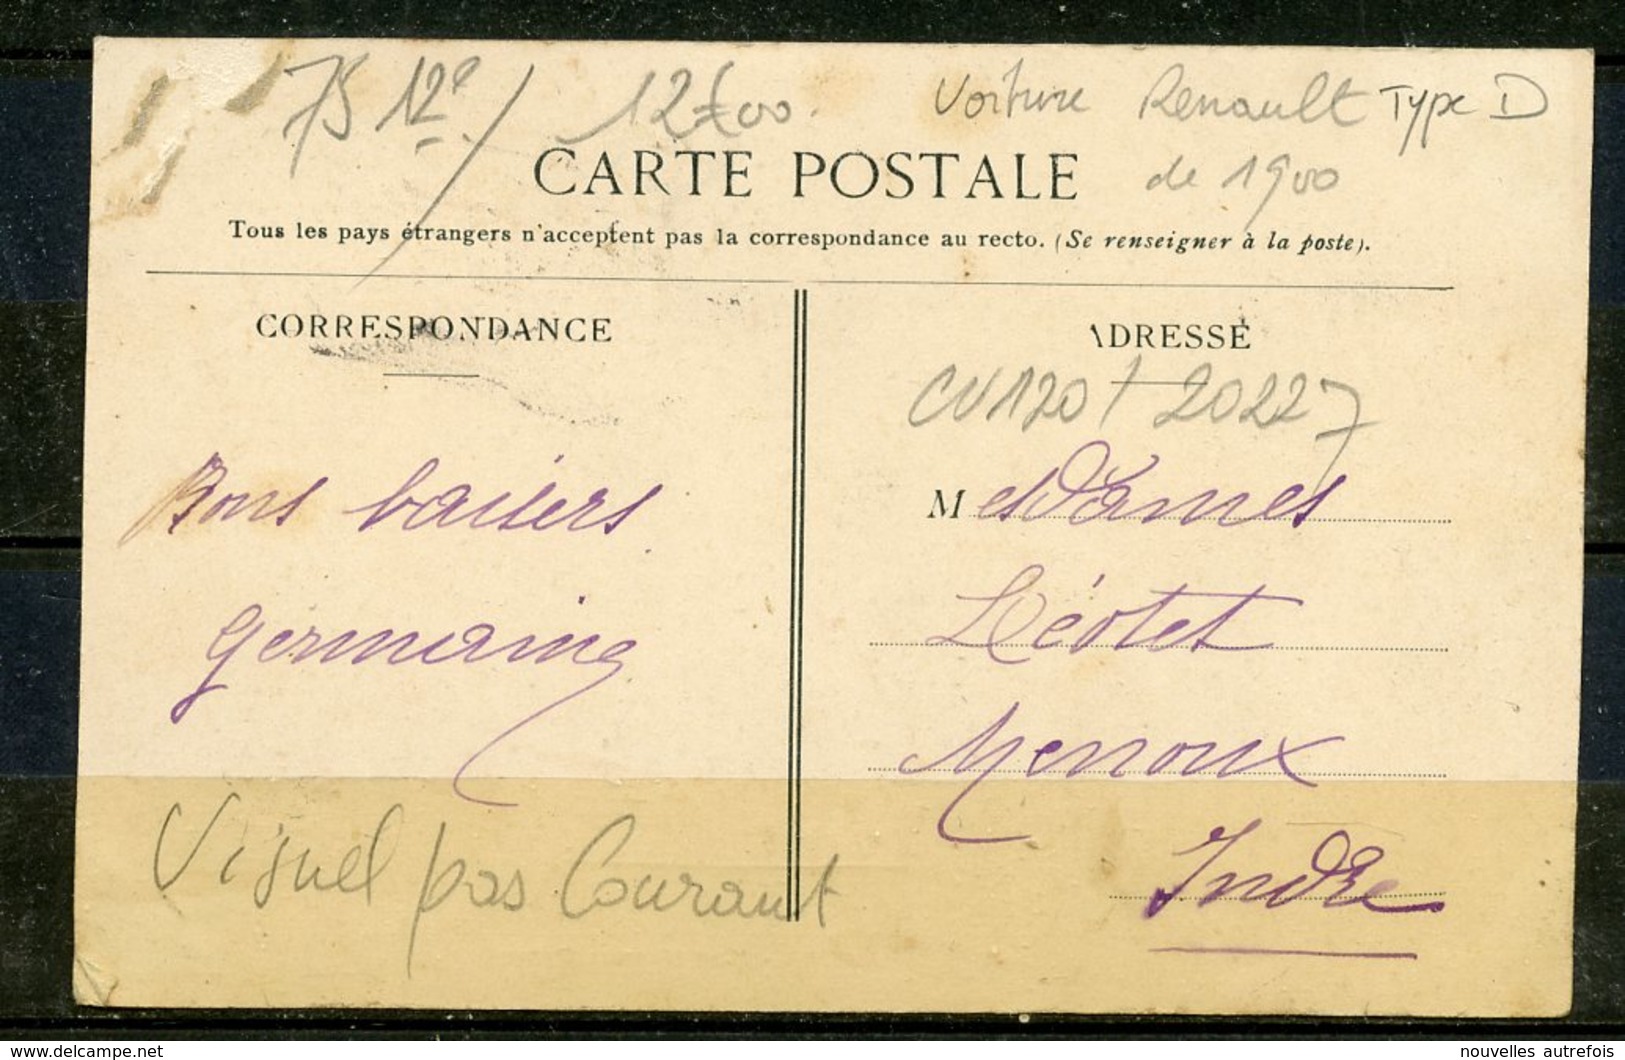 75 12e / 12€00. Voiture Renault Type D
de 1900
CARTE POSTALE
Tous les pays étrangers n'acceptent pas la correspondance au recto. (Se renseigner à la poste).
CORRESPONDANCE
ADRESSE
CV120 / 20227
Bons baisers
Germaine
Mesdames
Léotet
Menoux
Indre
Visuel pas Courant
delcampe.net
nouvelles autrefois